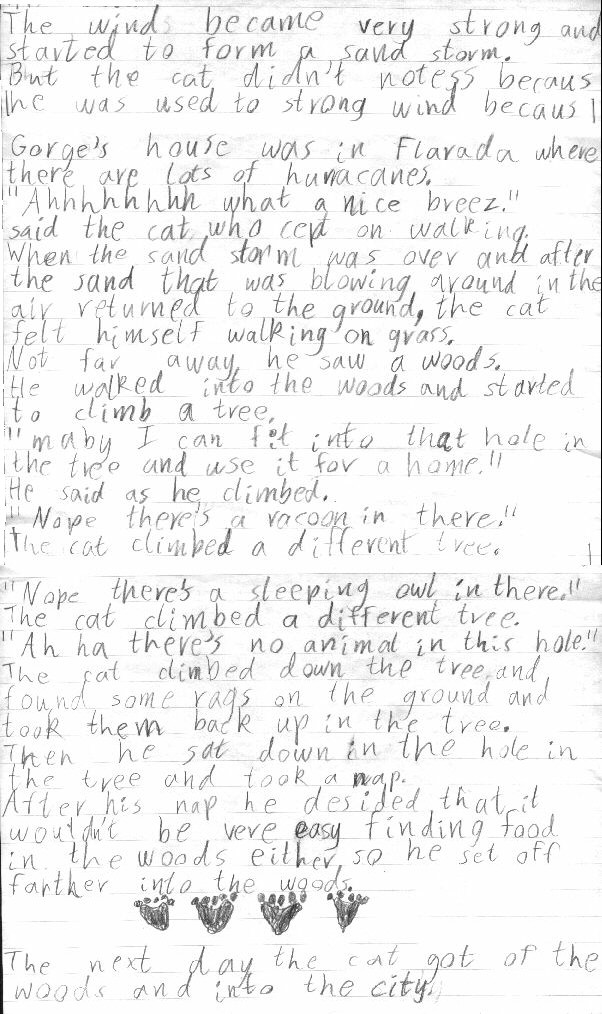 The winds became very strong and
started to form a sand storm.
But the cat didn't notess becaus
he was used to strong wind becaus
Gorge's house was in Flarada where
there are lots of hurracanes.
"Ahhhhhhhh what a nice breez."
said the cat who cept on walking.
When the sand storm was over and after
the sand that was blowing around in the
air returned to the ground, the cat
felt himself walking on grass.
Not far away he saw a woods.
He walked into the woods and started
to climb a tree.
"maby I can fit into that hole in
the tree and use it for a home."
He said as he climbed.
"Nope there's a racoon in there."
The cat climbed a different tree.
"Nope there's a sleeping owl in there."
The cat climbed a different tree.
"Ah ha there's no animal in this hole."
The cat climbed down the tree and
found some rags on the ground and
took them back up in the tree.
Then he sat down in the hole in
the tree and took a nap.
After his nap he desided that it
wouldn't be vere easy finding food
in the woods either, so he set off
farther into the woods.
The next day the cat got of the
woods and into the city.